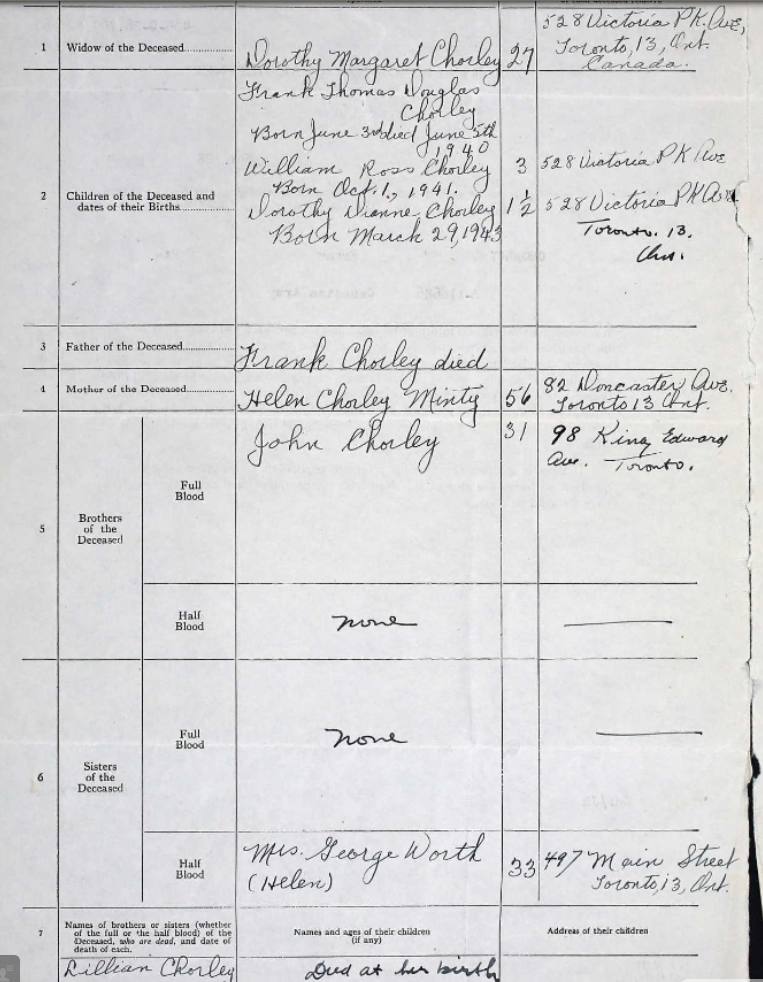 1 Widow of the Deceased................ Dorothy Margaret Chorley 27 528 Victoria PK. Ave,
Toronto, 13, Ont.
Canada.
2 Children of the Deceased and
dates of their Births................
Frank Thomas Douglas
Chorley
Born June 3rd died June 5th
1940
William Ross Chorley 3 528 Victoria PK Ave
Born Oct. 1, 1941.
Dorothy Dianne Chorley 1½ 528 Victoria PK Ave
Born March 29, 1943
Toronto. 13.
Ont.
3 Father of the Deceased................ Frank Chorley died
4 Mother of the Deceased................ Helen Chorley Minty 56 82 Doncaster Ave.
Toronto 13 Ont.
5 Brothers
of the
Deceased
Full
Blood
John Chorley 31 98 King Edward
Ave. Toronto.
Half
Blood
none
6 Sisters
of the
Deceased
Full
Blood
none
Half
Blood
Mrs. George Worth 33 497 Main Street
(Helen) Toronto, 13, Ont.
7 Names of brothers or sisters (whether
of the full or the half blood) of the
Deceased, who are dead, and date of
death of each.
Names and ages of their children
(if any)
Address of their children
Lillian Chorley Died at her birth